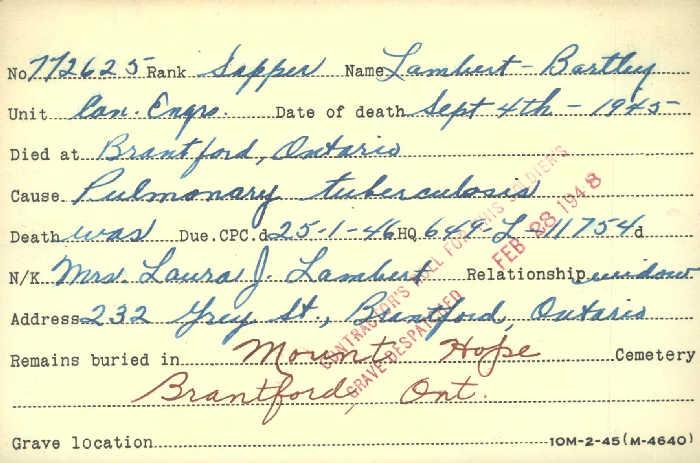 No 772625 Rank Sapper Name Lambert - Bartley
Unit Can. Engrs. Date of death Sept 4th - 1945
Died at Brantford, Ontario
Cause Pulmonary tuberculosis
Death was Due. CPC.d 25-1-46 HQ 649-L-11754 d
N/K Mrs. Laura J. Lambert Relationship widow
Address 232 Grey St., Brantford, Ontario
Remains buried in Mount Hope Cemetery
Brantford, Ont.
Grave location
10M-2-45(M-4640)
CONTRACTOR'S BILL FOR THIS SOLDIER'S
GRAVE DESPATCHED FEB 28 1948